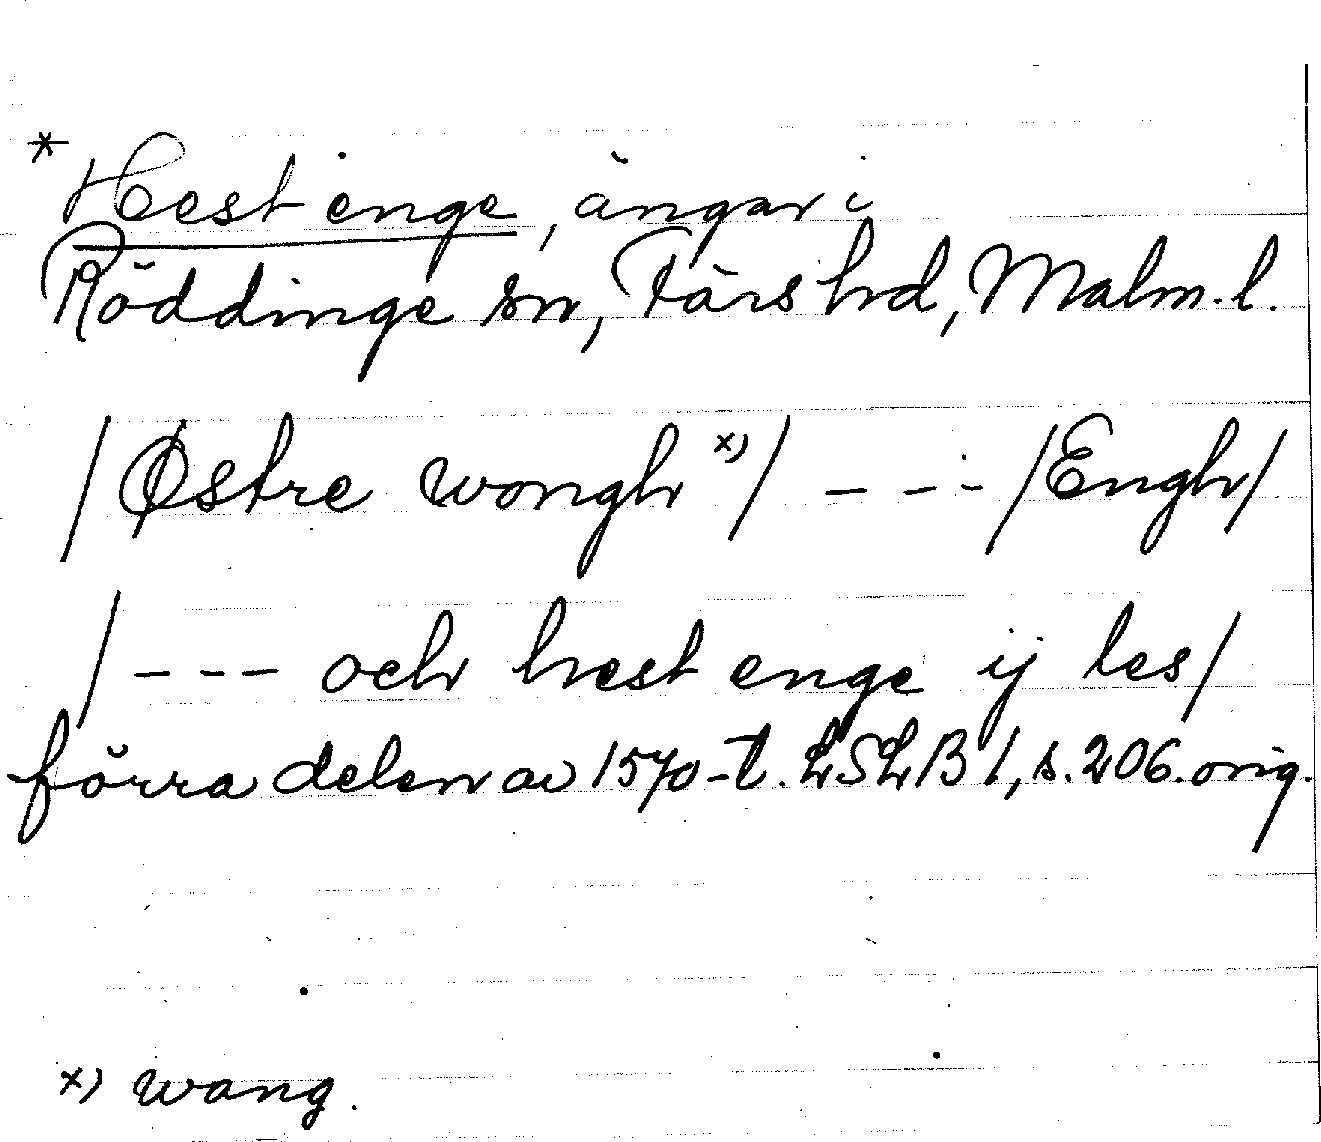 * Hest enge, ängar i
Röddinge sn, Färs hd, Malm. l.
/Østre wongh x)/ - - - /Engh/
/- - - och hest enge ij les/
förra delen av 1570-t. LSLB I, s. 206. orig.
x) wang.